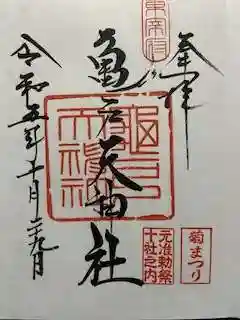 奉拝
東宰府
亀戸天神社
亀戸天神社
令和五年十月二十九日
菊まつり
元准勅祭
十社之内